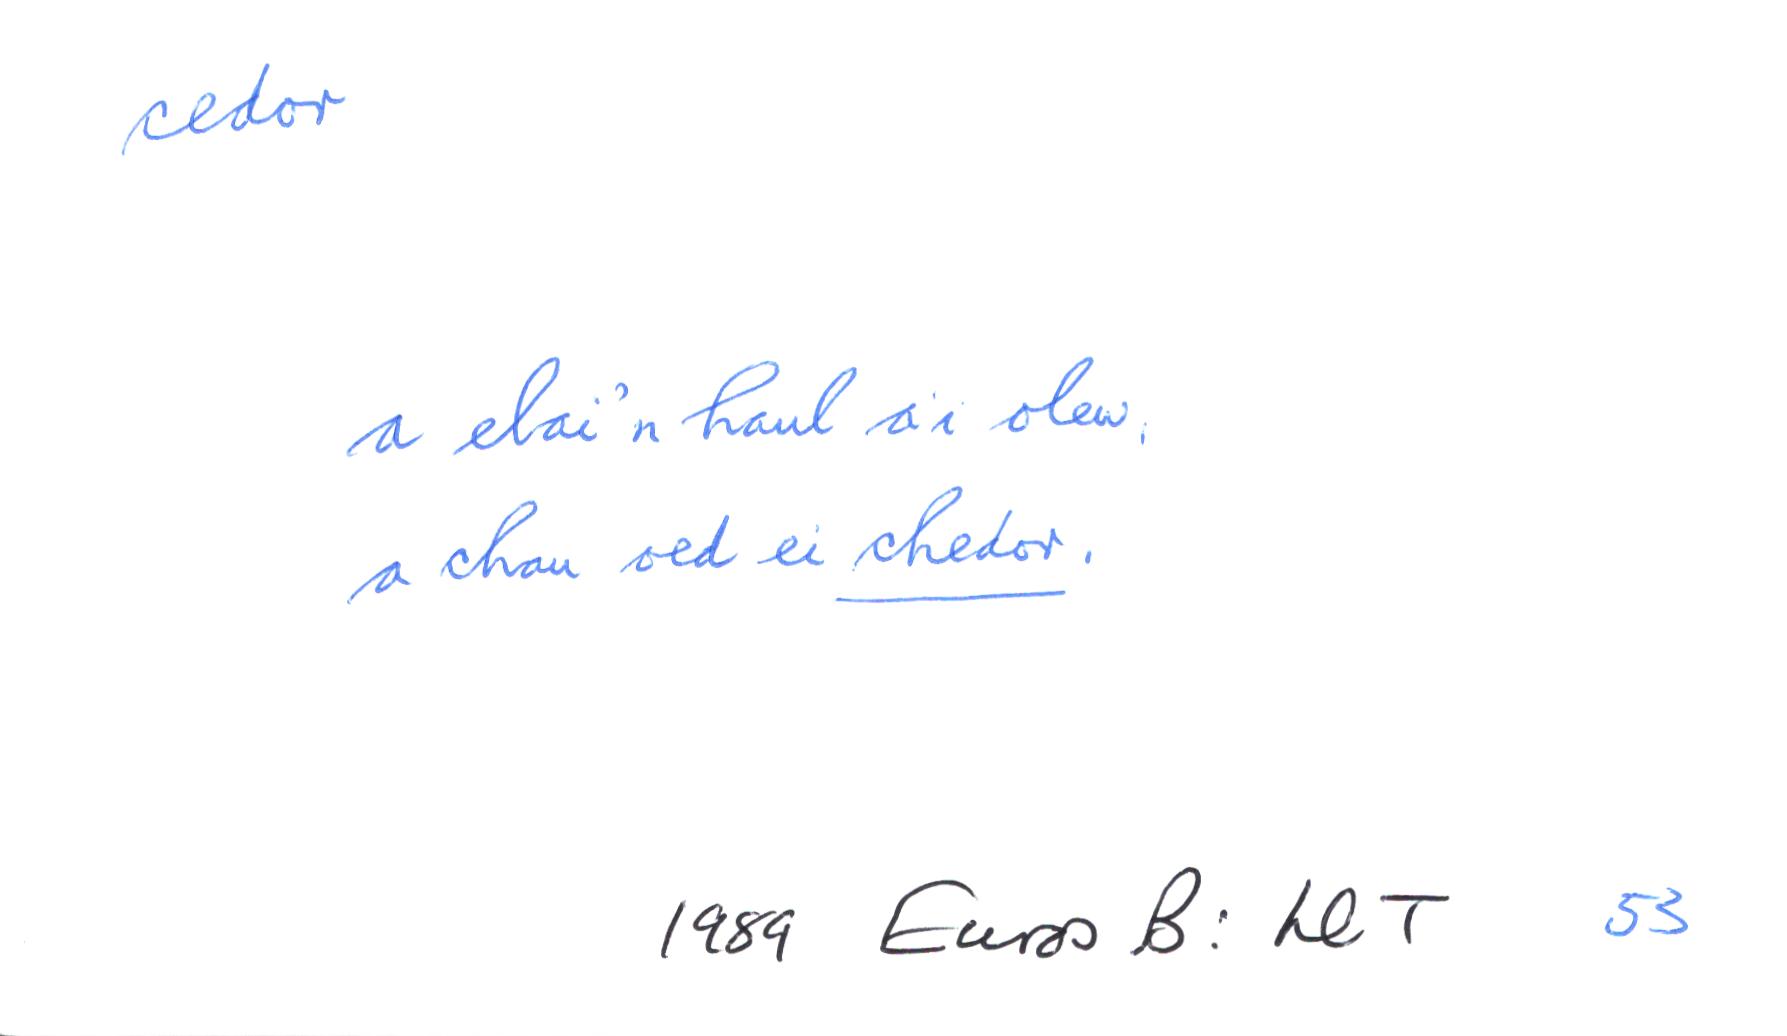 cedor
a elai'n haul a'i olew,
a chau oed ei chedor.
1989 Euros B: LlT 53